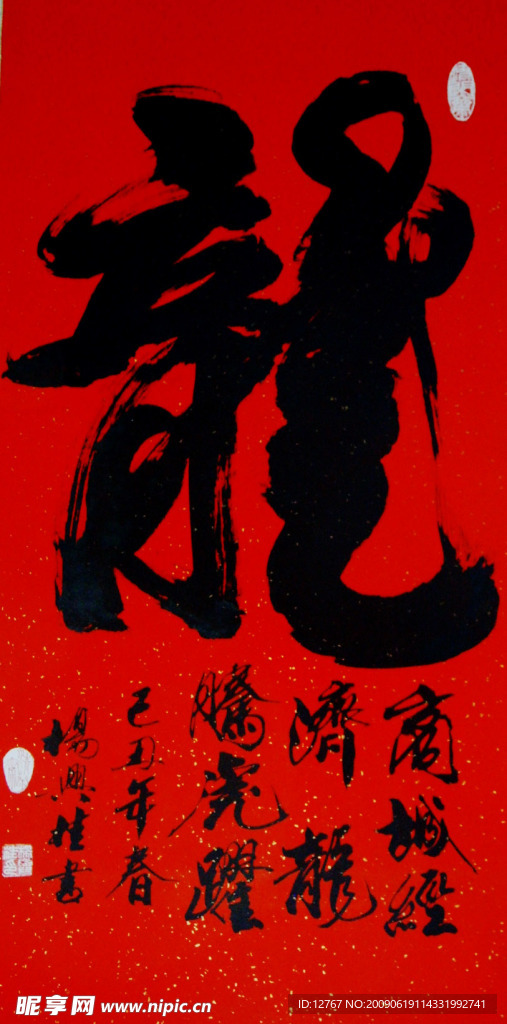 龍
商城經
濟龍
騰虎躍
己丑年春
楊興佳書
昵享网 www.nipic.cn
ID:12767 NO:20090619114331992741